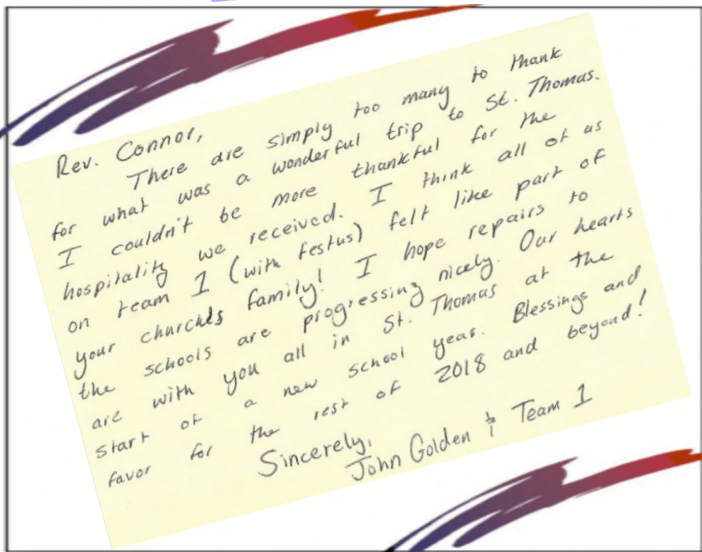 Rev. Connor,
There are simply too many to thank
for what was a wonderful trip to St. Thomas.
I couldn't be more thankful for the
hospitality we received. I think all of us
on team 1 (with Festus) felt like part of
your churchs family! I hope repairs to
the schools are progressing nicely. Our hearts
are with you all in St. Thomas at the
start of a new school year. Blessings and
favor for the rest of 2018 and beyond!
Sincerely,
John Golden & Team 1